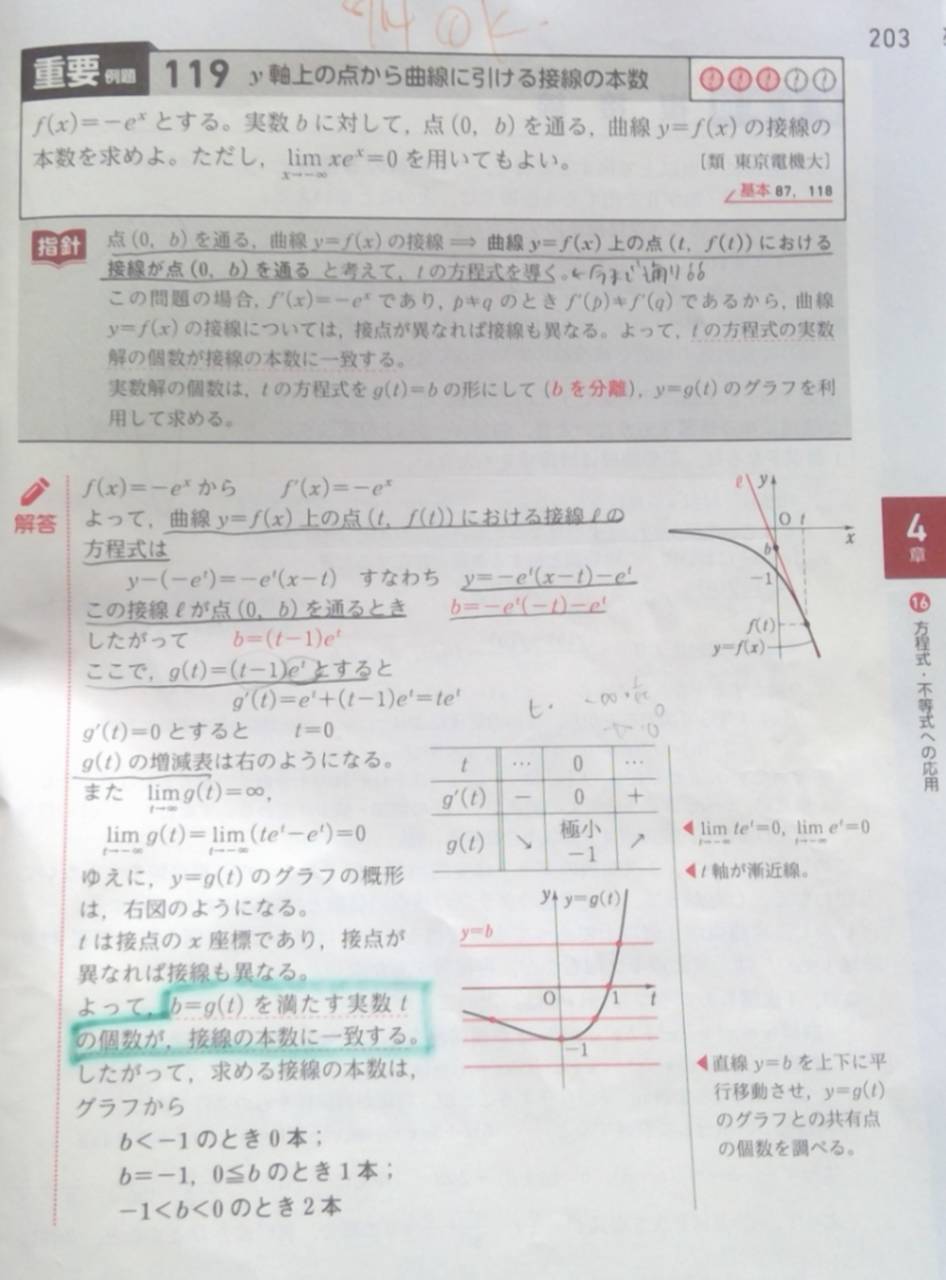 203
重要 例題 119 y軸上の点から曲線に引ける接線の本数
f(x)=-eˣ とする。実数 b に対して，点(0, b)を通る，曲線 y=f(x) の接線の
本数を求めよ。ただし，lim xeˣ=0 を用いてもよい。
x→-∞
[類 東京電機大]
基本 87, 118
指針
点(0, b)を通る，曲線 y=f(x) の接線 ⟹ 曲線 y=f(x) 上の点(t, f(t))における
接線が点(0, b)を通る と考えて，t の方程式を導く。←今まで通り
この問題の場合，f′(x)=-eˣ であり，p≠q のとき f′(p)≠f′(q) であるから，曲線
y=f(x) の接線については，接点が異なれば接線も異なる。よって，t の方程式の実数
解の個数が接線の本数に一致する。
実数解の個数は，t の方程式を g(t)=b の形にして(b を分離)，y=g(t) のグラフを利
用して求める。
解答
f(x)=-eˣ から f′(x)=-eˣ
よって，曲線 y=f(x) 上の点(t, f(t))における接線 ℓ の
方程式は
y-(-eᵗ)=-eᵗ(x-t) すなわち y=-eᵗ(x-t)-eᵗ
この接線 ℓ が点(0, b)を通るとき b=-eᵗ(-t)-eᵗ
したがって b=(t-1)eᵗ
ここで，g(t)=(t-1)eᵗ とすると
g′(t)=eᵗ+(t-1)eᵗ=teᵗ
g′(t)=0 とすると t=0
g(t) の増減表は右のようになる。
また lim g(t)=∞,
t→∞
lim g(t)=lim(teᵗ-eᵗ)=0
t→-∞ t→-∞
ゆえに，y=g(t) のグラフの概形
は，右図のようになる。
t は接点の x 座標であり，接点が
異なれば接線も異なる。
よって，b=g(t) を満たす実数 t
の個数が，接線の本数に一致する。
したがって，求める接線の本数は，
グラフから
b<-1 のとき 0 本；
b=-1, 0≦b のとき 1 本；
-1<b<0 のとき 2 本
ℓ y
O t
x
b
-1
f(t)
y=f(x)
t … 0 …
g′(t) - 0 +
g(t) ↘ 極小 ↗
-1
◀ lim teᵗ=0, lim eᵗ=0
t→-∞ t→-∞
◀ t 軸が漸近線。
y y=g(t)
y=b
O 1 t
-1
◀ 直線 y=b を上下に平
行移動させ，y=g(t)
のグラフとの共有点
の個数を調べる。
4
章
16 方程式・不等式への応用